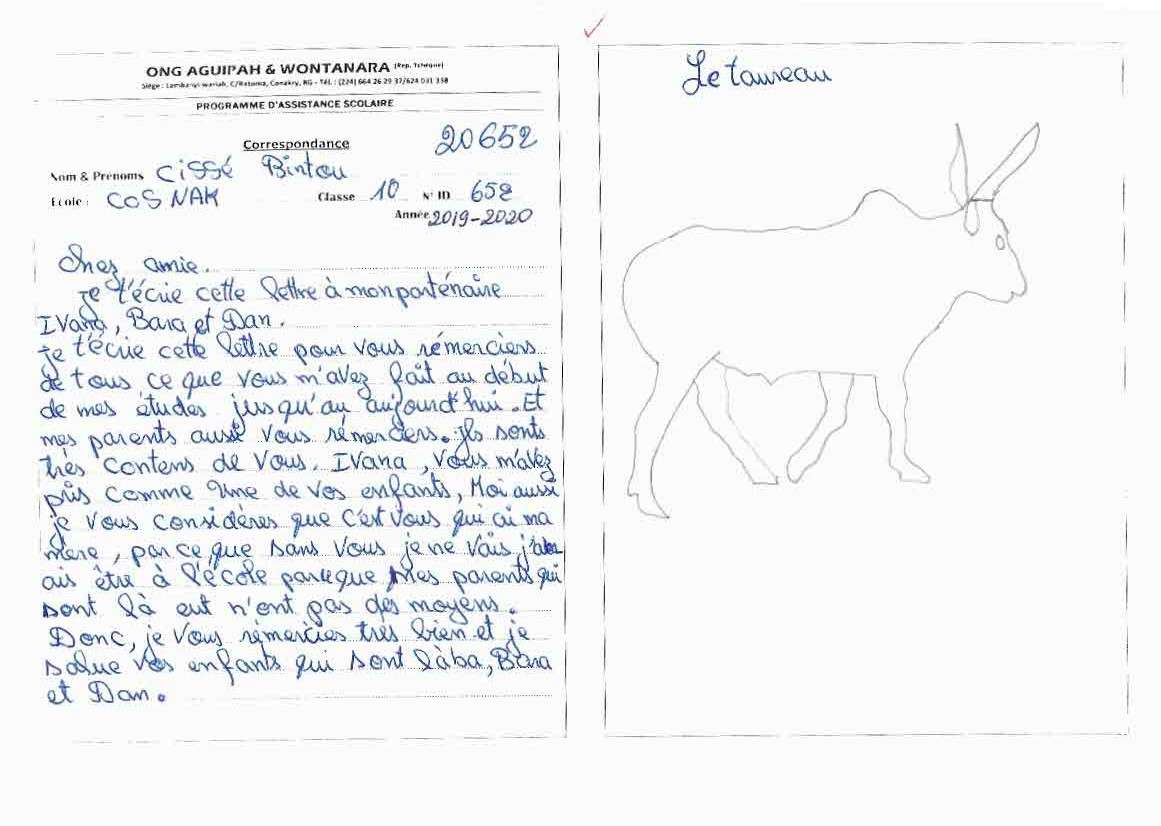 ONG AGUIPAH & WONTANARA (Rep. Tchèque)
Siège : Lambanyi-warriah, C/Ratoma, Conakry, RG - Tél. : (224) 664 26 29 37/624 031 358
PROGRAMME D'ASSISTANCE SCOLAIRE
Correspondance
20652
Nom & Prénoms Cissé Bintou
Ecole : COS NAK Classe 10 N° ID 652
Année 2019-2020
Chez amie.
je t'écrie cette lettre à mon parténaire
Ivana, Bara et Dan.
je t'écrie cette lettre pour vous rémerciers
de tous ce que vous m'avez fait au début
de mes études jusqu'au aujourd'hui. Et
mes parents aussi vous rémerciers. Ils sonts
très contens de vous. Ivana, vous m'avez
pris comme une de vos enfants, Moi aussi
je vous considères que c'est vous qui ai ma
mère, par ce que sans vous je ne vais
ais être à l'école parceque mes parents qui
sont là eut n'ont pas des moyens.
Donc, je vous rémercies très bien et je
salue vos enfants qui sont làba, Bara
et Dan.
Le taureau